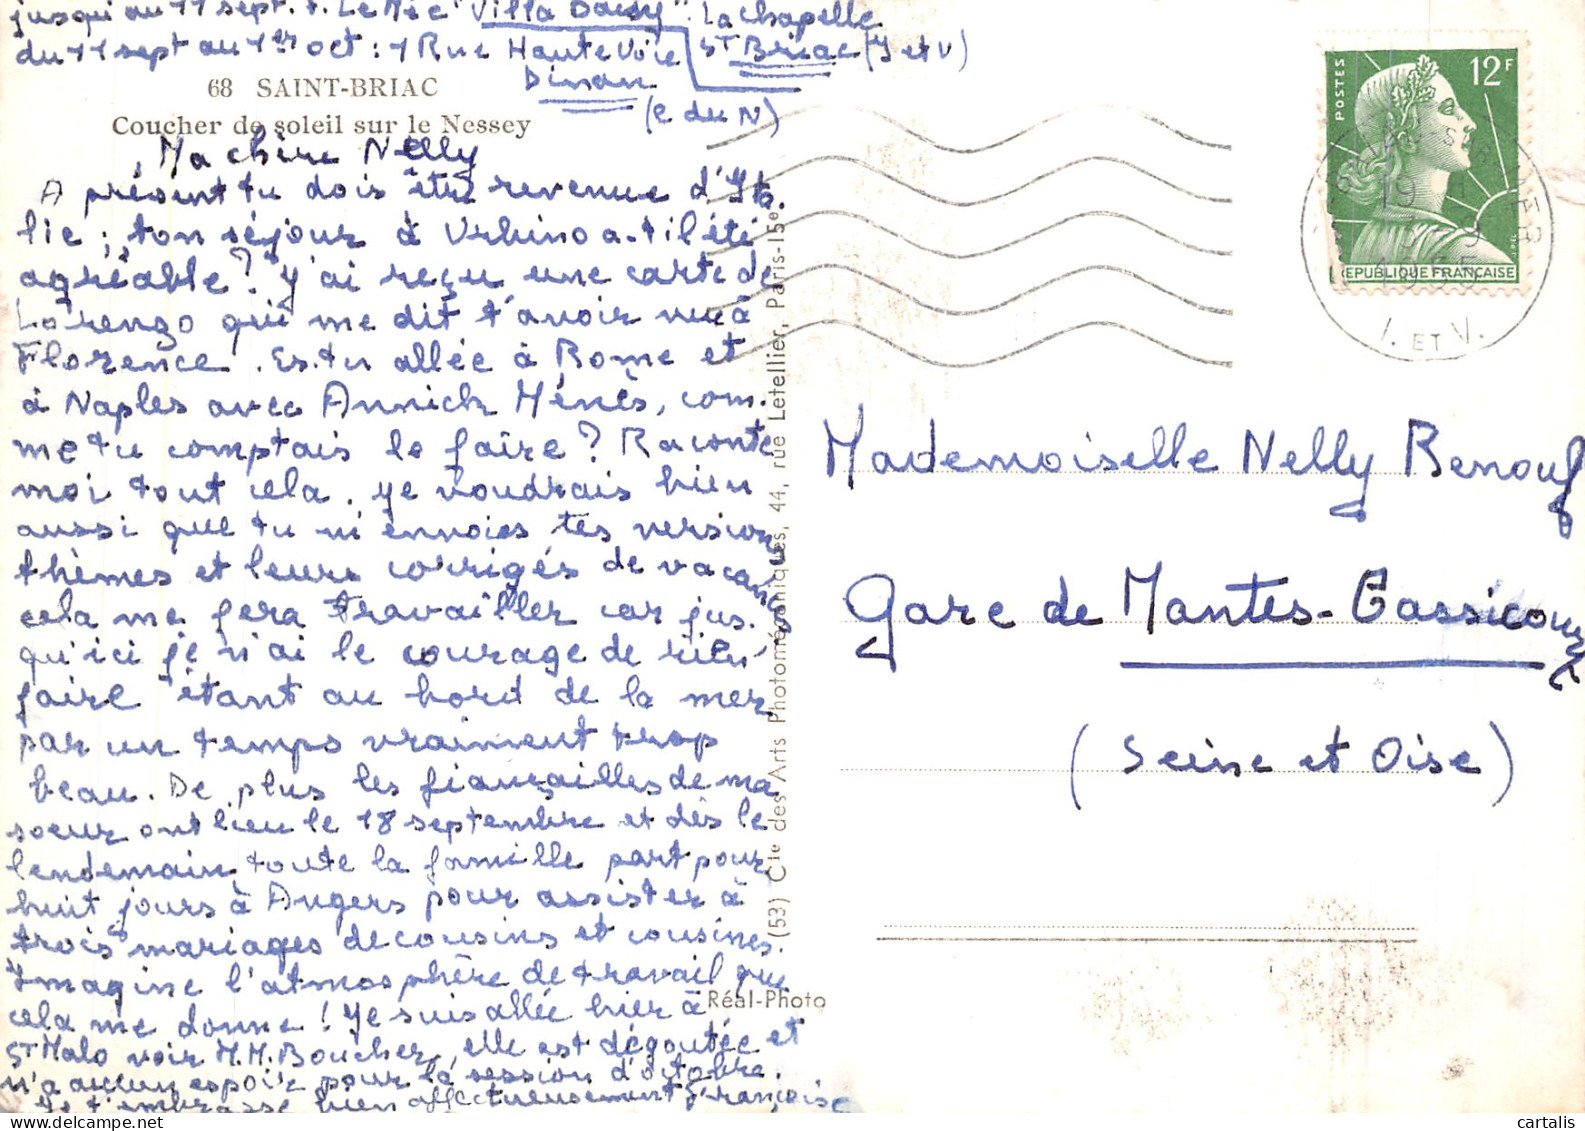 jusqu'au 11 sept. : Le Mée "Villa Daisy" La Chapelle
du 11 sept au 1er oct : 1 Rue Haute Voie ST Briac (I et V)
Dinan
(C du N)
68 SAINT-BRIAC
Coucher de soleil sur le Nessey
Ma chère Nelly
A présent tu dois être revenue d'Ita-
lie ; ton séjour à Urbino a-t-il été
agréable ? J'ai reçu une carte de
Lorenzo qui me dit t'avoir vue à
Florence. Es-tu allée à Rome et
à Naples avec Annick Ménès, com-
me tu comptais le faire ? Raconte
moi tout cela. Je voudrais bien
aussi que tu m'envoies tes versions
thèmes et leurs corrigés de vacances
cela me fera travailler car jus-
qu'ici je n'ai le courage de rien
faire étant au bord de la mer
par un temps vraiment trop
beau. De plus les fiançailles de ma
soeur ont lieu le 18 septembre et dès le
lendemain toute la famille part pour
huit jours à Angers pour assister à
trois mariages de cousins et cousines.
Imagine l'atmosphère de travail que
cela me donne ! Je suis allée hier à
ST Malo voir M.M. Boucher, elle est dégoutée et
n'a aucun espoir pour la session d'octobre.
Je t'embrasse bien affectueusement Françoise
(53) Cie des Arts Photomécaniques, 44, rue Letellier, Paris-15e
Réal-Photo
POSTES
12F
REPUBLIQUE FRANÇAISE
19 H
7-9
1955
I. ET V.
Mademoiselle Nelly Renouf
Gare de Mantes-Gassicourt
(Seine et Oise)
cartalis